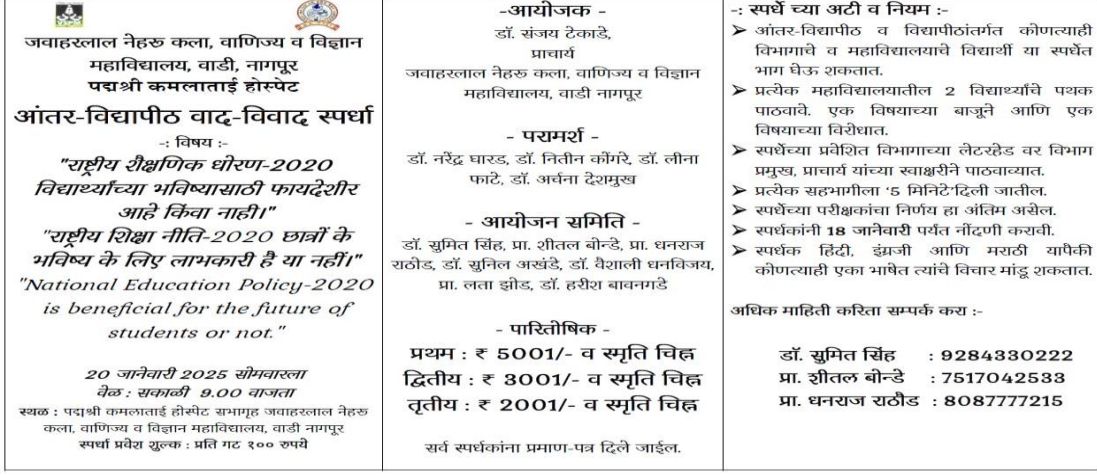 जवाहरलाल नेहरू कला, वाणिज्य व विज्ञान
महाविद्यालय, वाडी, नागपूर
पद्मश्री कमलाताई होस्पेट
आंतर-विद्यापीठ वाद-विवाद स्पर्धा
-: विषय :-
"राष्ट्रीय शैक्षणिक धोरण-2020
विद्यार्थ्यांच्या भविष्यासाठी फायदेशीर
आहे किंवा नाही।"
"राष्ट्रीय शिक्षा नीति-2020 छात्रों के
भविष्य के लिए लाभकारी है या नहीं।"
"National Education Policy-2020
is beneficial for the future of
students or not."
20 जानेवारी 2025 सोमवारला
वेळ : सकाळी 9.00 वाजता
स्थळ : पद्मश्री कमलाताई होस्पेट सभागृह जवाहरलाल नेहरू
कला, वाणिज्य व विज्ञान महाविद्यालय, वाडी नागपूर
स्पर्धा प्रवेश शुल्क : प्रति गट १०० रुपये
-आयोजक -
डॉ. संजय टेकाडे,
प्राचार्य
जवाहरलाल नेहरू कला, वाणिज्य व विज्ञान
महाविद्यालय, वाडी नागपूर
- परामर्श -
डॉ. नरेंद्र घारड, डॉ. नितीन कोंगरे, डॉ. लीना
फाटे, डॉ. अर्चना देशमुख
- आयोजन समिति -
डॉ. सुमित सिंह, प्रा. शीतल बोन्डे, प्रा. धनराज
राठोड, डॉ. सुनिल अखंडे, डॉ. वैशाली धनविजय,
प्रा. लता झोड, डॉ. हरीश बावनगडे
- पारितोषिक -
प्रथम : ₹ 5001/- व स्मृति चिह्न
द्वितीय : ₹ 3001/- व स्मृति चिह्न
तृतीय : ₹ 2001/- व स्मृति चिह्न
सर्व स्पर्धकांना प्रमाण-पत्र दिले जाईल.
-: स्पर्धे च्या अटी व नियम :-
➤ आंतर-विद्यापीठ व विद्यापीठांतर्गत कोणत्याही
विभागाचे व महाविद्यालयाचे विद्यार्थी या स्पर्धेत
भाग घेऊ शकतात.
➤ प्रत्येक महाविद्यालयातील 2 विद्यार्थ्यांचे पथक
पाठवावे. एक विषयाच्या बाजूने आणि एक
विषयाच्या विरोधात.
➤ स्पर्धेच्या प्रवेशित विभागाच्या लेटरहेड वर विभाग
प्रमुख, प्राचार्य यांच्या स्वाक्षरीने पाठवाव्यात.
➤ प्रत्येक सहभागीला '5 मिनिटे'दिली जातील.
➤ स्पर्धेच्या परीक्षकांचा निर्णय हा अंतिम असेल.
➤ स्पर्धकांनी 18 जानेवारी पर्यंत नोंदणी करावी.
➤ स्पर्धक हिंदी, इंग्रजी आणि मराठी यापैकी
कोणत्याही एका भाषेत त्यांचे विचार मांडू शकतात.
अधिक माहिती करिता सम्पर्क करा :-
डॉ. सुमित सिंह : 9284330222
प्रा. शीतल बोन्डे : 7517042533
प्रा. धनराज राठौड : 8087777215